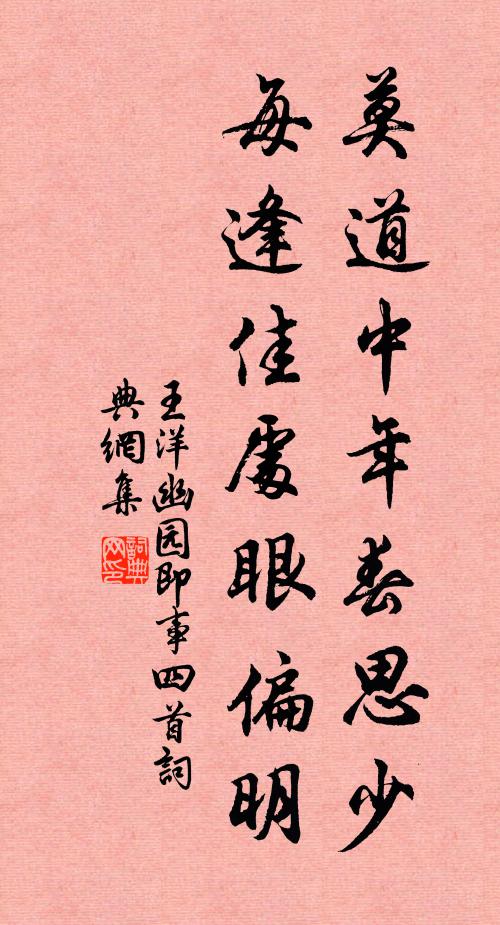 莫道中年春思少
每逢佳處眼偏明
王洋幽园即事四首詞
典網集
詞典
网印